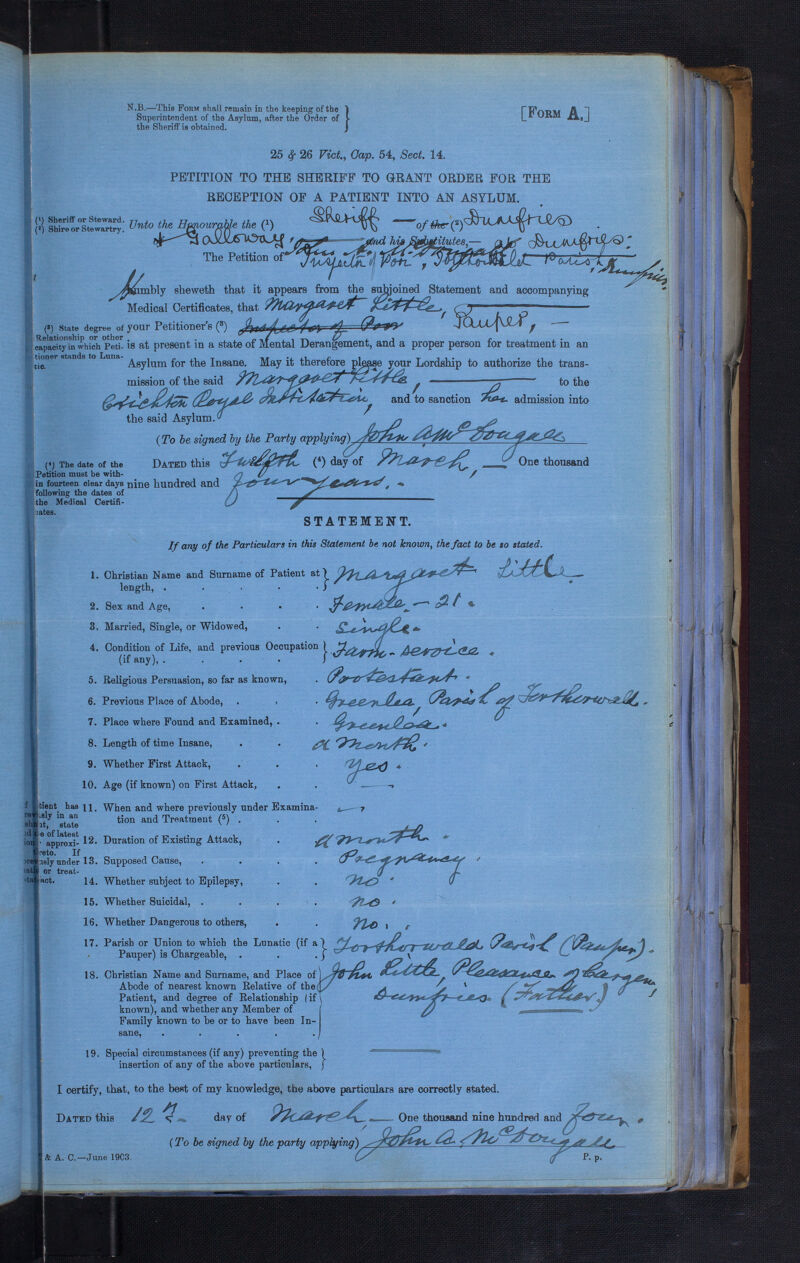 N.B.—This Form shall remain in the keeping of the
Superintendent of the Asylum, after the Order of
the Sheriff is obtained.
[Form A.]
25 & 26 Vict., Cap. 54, Sect. 14.
PETITION TO THE SHERIFF TO GRANT ORDER FOR THE
RECEPTION OF A PATIENT INTO AN ASYLUM.
(¹) Sheriff or Steward.
(²) Shire or Stewartry.
Unto the Honourable the (¹) Sheriff — of the (²) Dumfries
& Galloway, and his Substitutes,— at Dumfries:
The Petition of John A. McDougall
Inspector of Poor, Torthorwald Parish, Dumfries,
Humbly sheweth that it appears from the subjoined Statement and accompanying
Medical Certificates, that Margaret Little,
(³) State degree of
Relationship or other
capacity in which Peti-
tioner stands to Luna-
tic.
your Petitioner's (³) Inspector of Poor Pauper, —
is at present in a state of Mental Derangement, and a proper person for treatment in an
Asylum for the Insane. May it therefore please your Lordship to authorize the trans-
mission of the said Margaret Little, — to the
Crichton Royal Institution, and to sanction her admission into
the said Asylum.
(To be signed by the Party applying) John A McDougall
(⁴) The date of the
Petition must be with-
in fourteen clear days
following the dates of
the Medical Certifi-
cates.
Dated this Twelfth (⁴) day of March, — One thousand
nine hundred and four years.
STATEMENT.
If any of the Particulars in this Statement be not known, the fact to be so stated.
1. Christian Name and Surname of Patient at length, . Margaret Little
2. Sex and Age, Female. — 21.
3. Married, Single, or Widowed, Single.
4. Condition of Life, and previous Occupation (if any), . Farm-service.
5. Religious Persuasion, so far as known, Protestant.
6. Previous Place of Abode, . Greenlea, Parish of Torthorwald.
7. Place where Found and Examined, . Greenlea.
8. Length of time Insane, a Month.
9. Whether First Attack, Yes.
10. Age (if known) on First Attack, —
11. When and where previously under Examina-
tion and Treatment (⁵) . —
tient has
sly in an
it, state
e of latest
approxi-
reto. If
sly under
or treat-
act.
12. Duration of Existing Attack, a month.
13. Supposed Cause, Pregnancy.
14. Whether subject to Epilepsy, no.
15. Whether Suicidal, . no.
16. Whether Dangerous to others, no.
17. Parish or Union to which the Lunatic (if a
Pauper) is Chargeable, . Torthorwald Parish (Pauper).
18. Christian Name and Surname, and Place of John Little, Pleasance of Cargen,
Abode of nearest known Relative of the Dumfries. (Father)
Patient, and degree of Relationship (if
known), and whether any Member of
Family known to be or to have been In-
sane,
19. Special circumstances (if any) preventing the
insertion of any of the above particulars, —
I certify, that, to the best of my knowledge, the above particulars are correctly stated.
Dated this 12th day of March, — One thousand nine hundred and four.
(To be signed by the party applying) John A. McDougall
& A. C.—June 1903.
P. p.